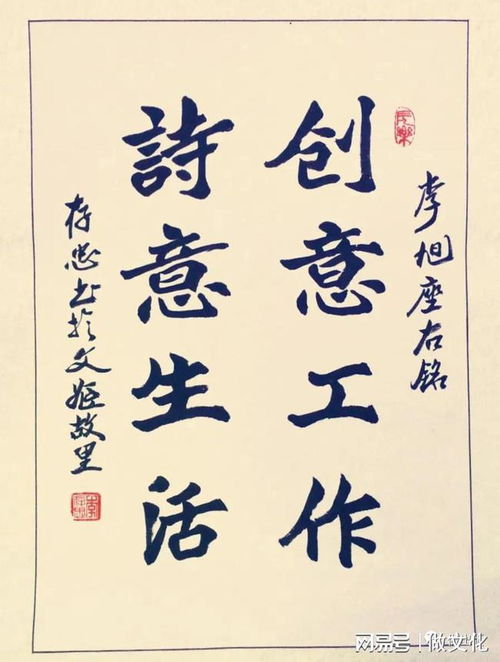 李旭座右铭
创意工作
詩意生活
存忠书於文姬故里
网易号 | 做文化